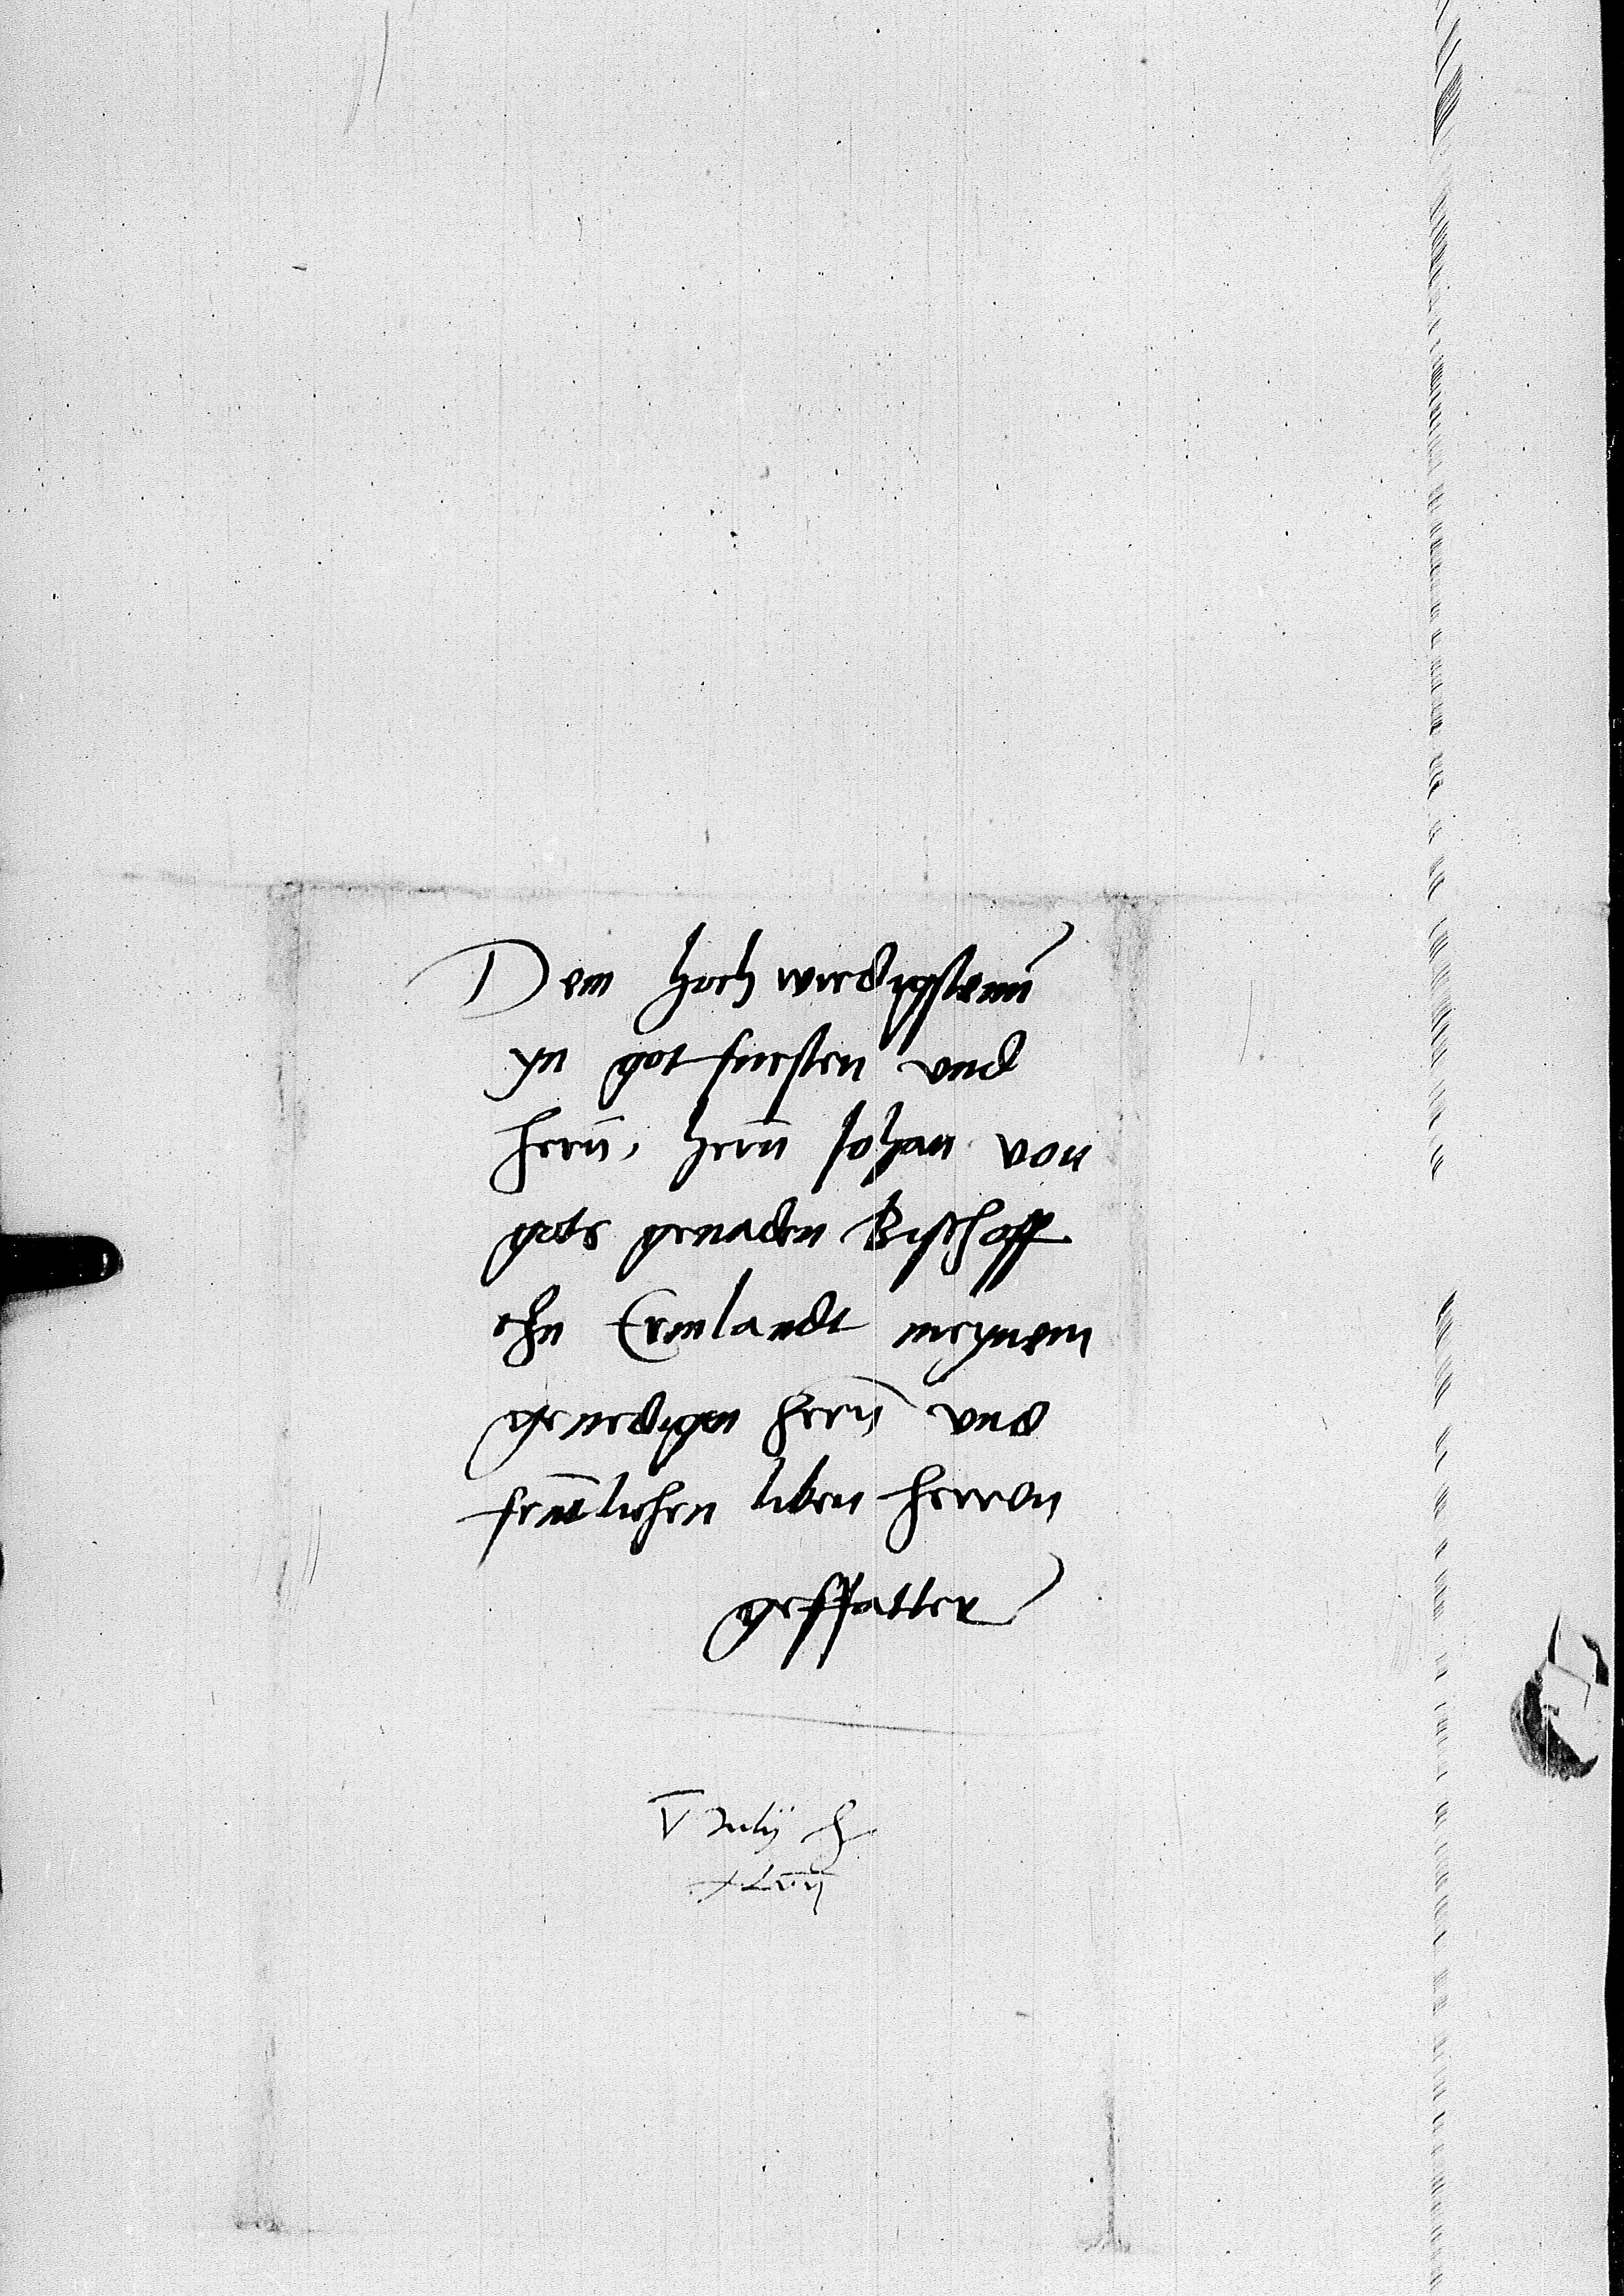 Dem hochwirdigstenn
yn got fursten und
hern̄, hern̄ Johan von
gots genaden Bischoff
ehn Ermlandt meynem
genedigen hern̄ und
frūtlichen liben herren
geffatter
V Julij
XLVII